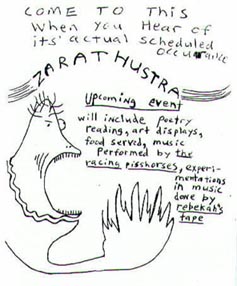 COME TO This
When you Hear of
its' actual scheduled
occurance
ZARATHUSTRA
Upcoming event
will include poetry
reading, art displays,
food served, music
performed by the
racing pisshorses, experi-
mentations
in music
done by
rebekah's
tape